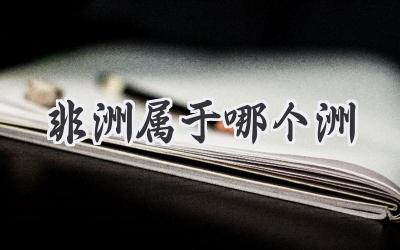 非洲属于哪个洲